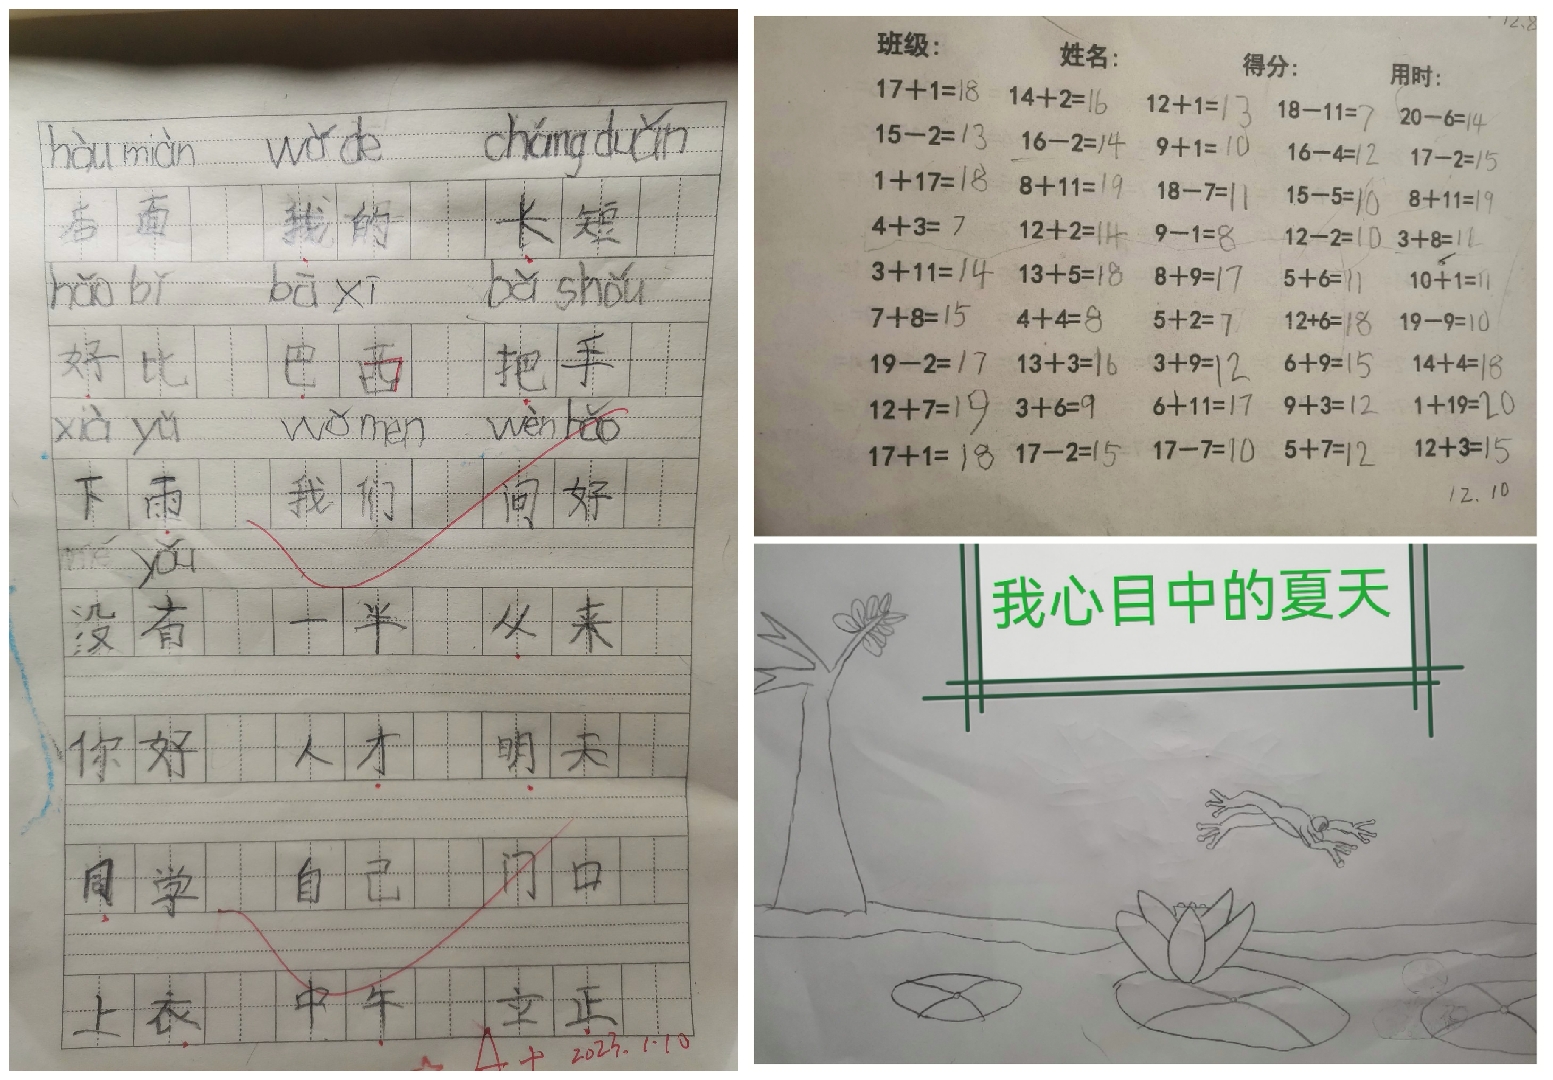 hòu miàn wǒ de cháng duǎn
后面 我的 长短
hǎo bǐ bā xī bǎ shǒu
好比 巴西 把手
xià yǔ wǒ men wèn hǎo
下雨 我们 问好
yǒu
没有 一半 从来
你好 人才 明天
同学 自己 门口
上衣 中午 立正
A+ 2023.1.10
12.8
班级： 姓名： 得分： 用时：
17+1=18 14+2=16 12+1=13 18-11=7 20-6=14
15-2=13 16-2=14 9+1=10 16-4=12 17-2=15
1+17=18 8+11=19 18-7=11 15-5=10 8+11=19
4+3=7 12+2=14 9-1=8 12-2=10 3+8=11
3+11=14 13+5=18 8+9=17 5+6=11 10+1=11
7+8=15 4+4=8 5+2=7 12+6=18 19-9=10
19-2=17 13+3=16 3+9=12 6+9=15 14+4=18
12+7=19 3+6=9 6+11=17 9+3=12 1+19=20
17+1=18 17-2=15 17-7=10 5+7=12 12+3=15
12.10
我心目中的夏天